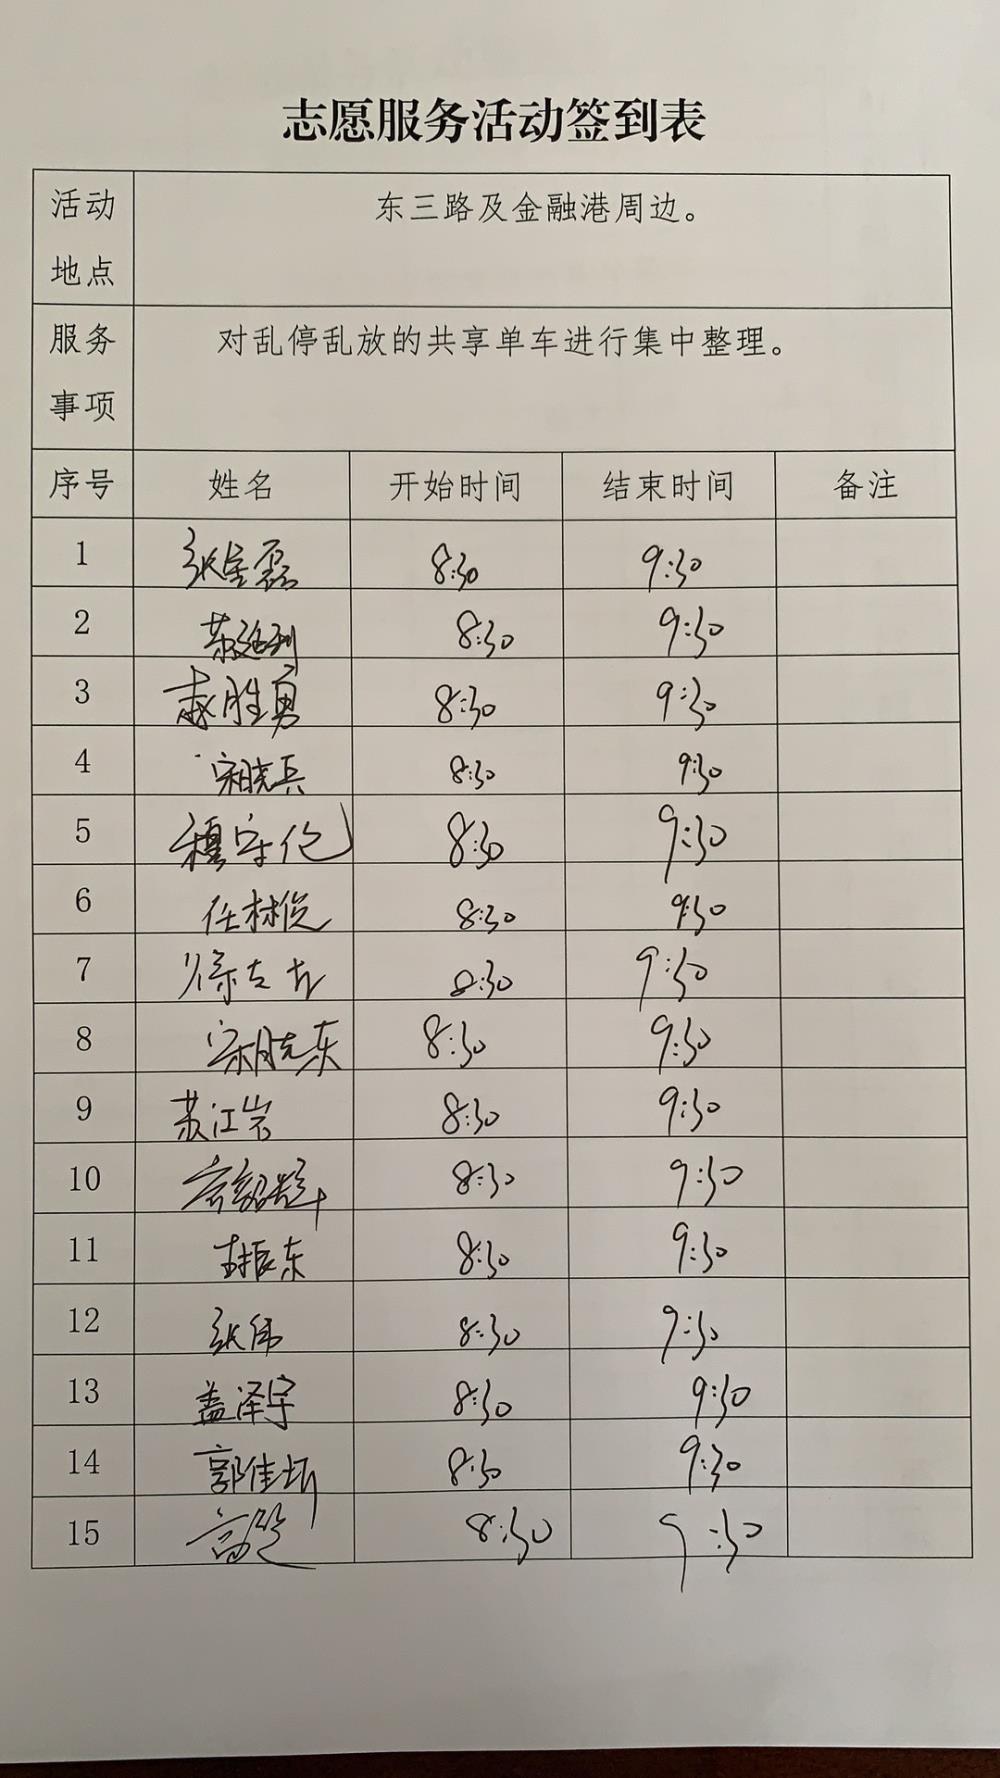 志愿服务活动签到表
活动地点 东三路及金融港周边。
服务事项 对乱停乱放的共享单车进行集中整理。
序号 姓名 开始时间 结束时间 备注
1 张宝磊 8:30 9:30
2 8:30 9:30
3 赵胜勇 8:30 9:30
4 宋晓兵 8:30 9:30
5 穆守伦 8:30 9:30
6 任林俊 8:30 9:30
7 徐 8:30 9:30
8 宋晓东 8:30 9:30
9 苏江岩 8:30 9:30
10 8:30 9:30
11 振东 8:30 9:30
12 张伟 8:30 9:30
13 盖泽宇 8:30 9:30
14 郭佳 8:30 9:30
15 高 8:30 9:30